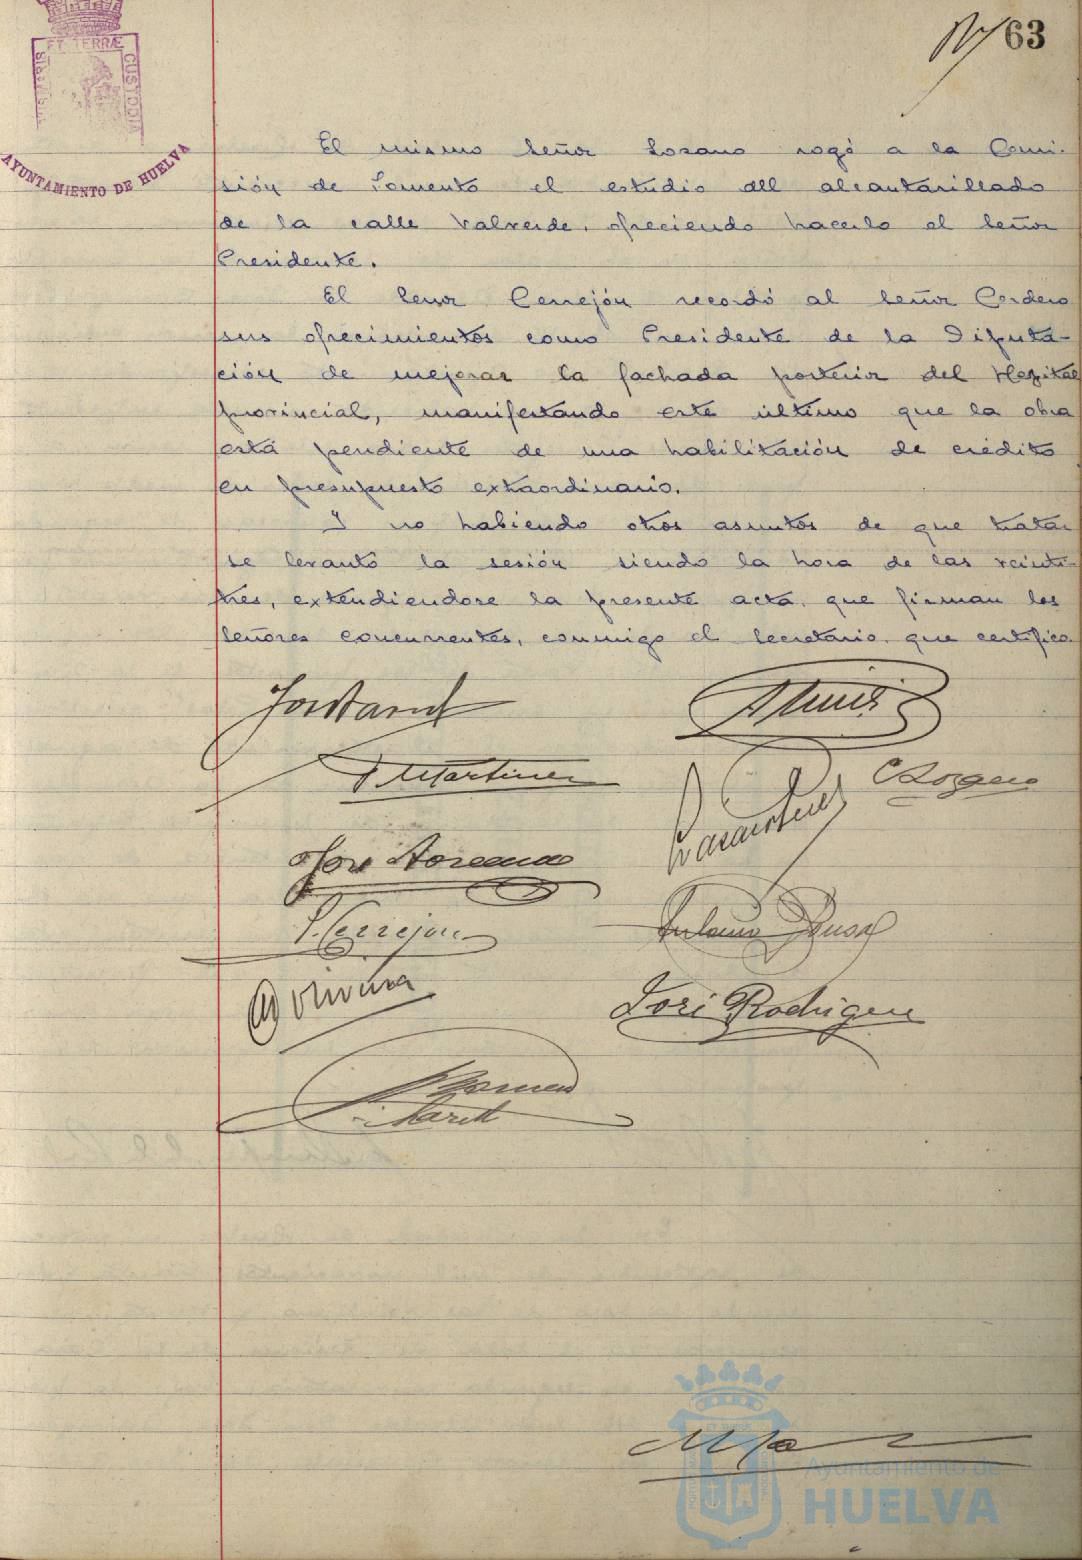 63
ET TERRÆ
CUSTODIA
AYUNTAMIENTO DE HUELVA
El mismo Señor Lozano rogó a la Comi-
sión de Fomento el estudio del alcantarillado
de la calle Valverde, ofreciendo hacerlo el Señor
Presidente.
El Señor Cerrejón recordó al Señor Cordero
sus ofrecimientos como Presidente de la Diputa-
ción de mejorar la fachada posterior del Hospital
provincial, manifestando este último que la obra
está pendiente de una habilitación de crédito
en presupuesto extraordinario.
Y no habiendo otros asuntos de que tratar
se levantó la sesión siendo la hora de las veinti-
tres, extendiendose la presente acta, que firman los
Señores concurrentes, conmigo el Secretario, que certifico.
Martinez
C Lozano
José
P. Cerrejón
Antonio
Oliveira
José Rodriguez
Ayuntamiento de
HUELVA